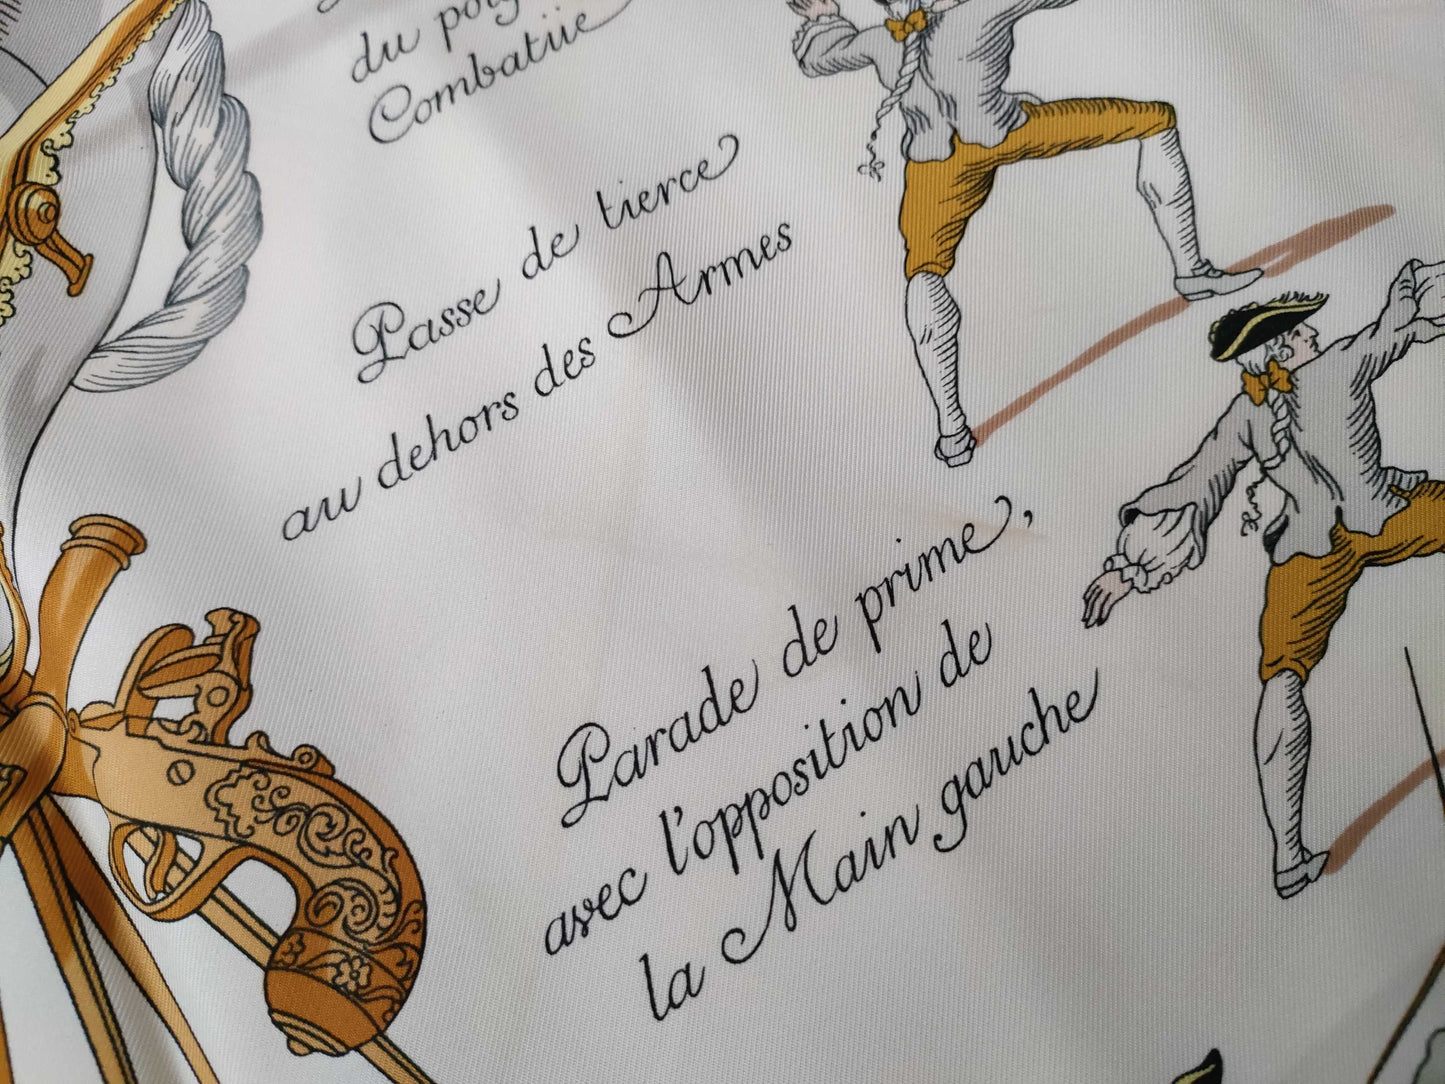 du
Combattüe
Passe de tierce
au dehors des Armes
Parade de prime,
avec l'opposition de
la Main gauche